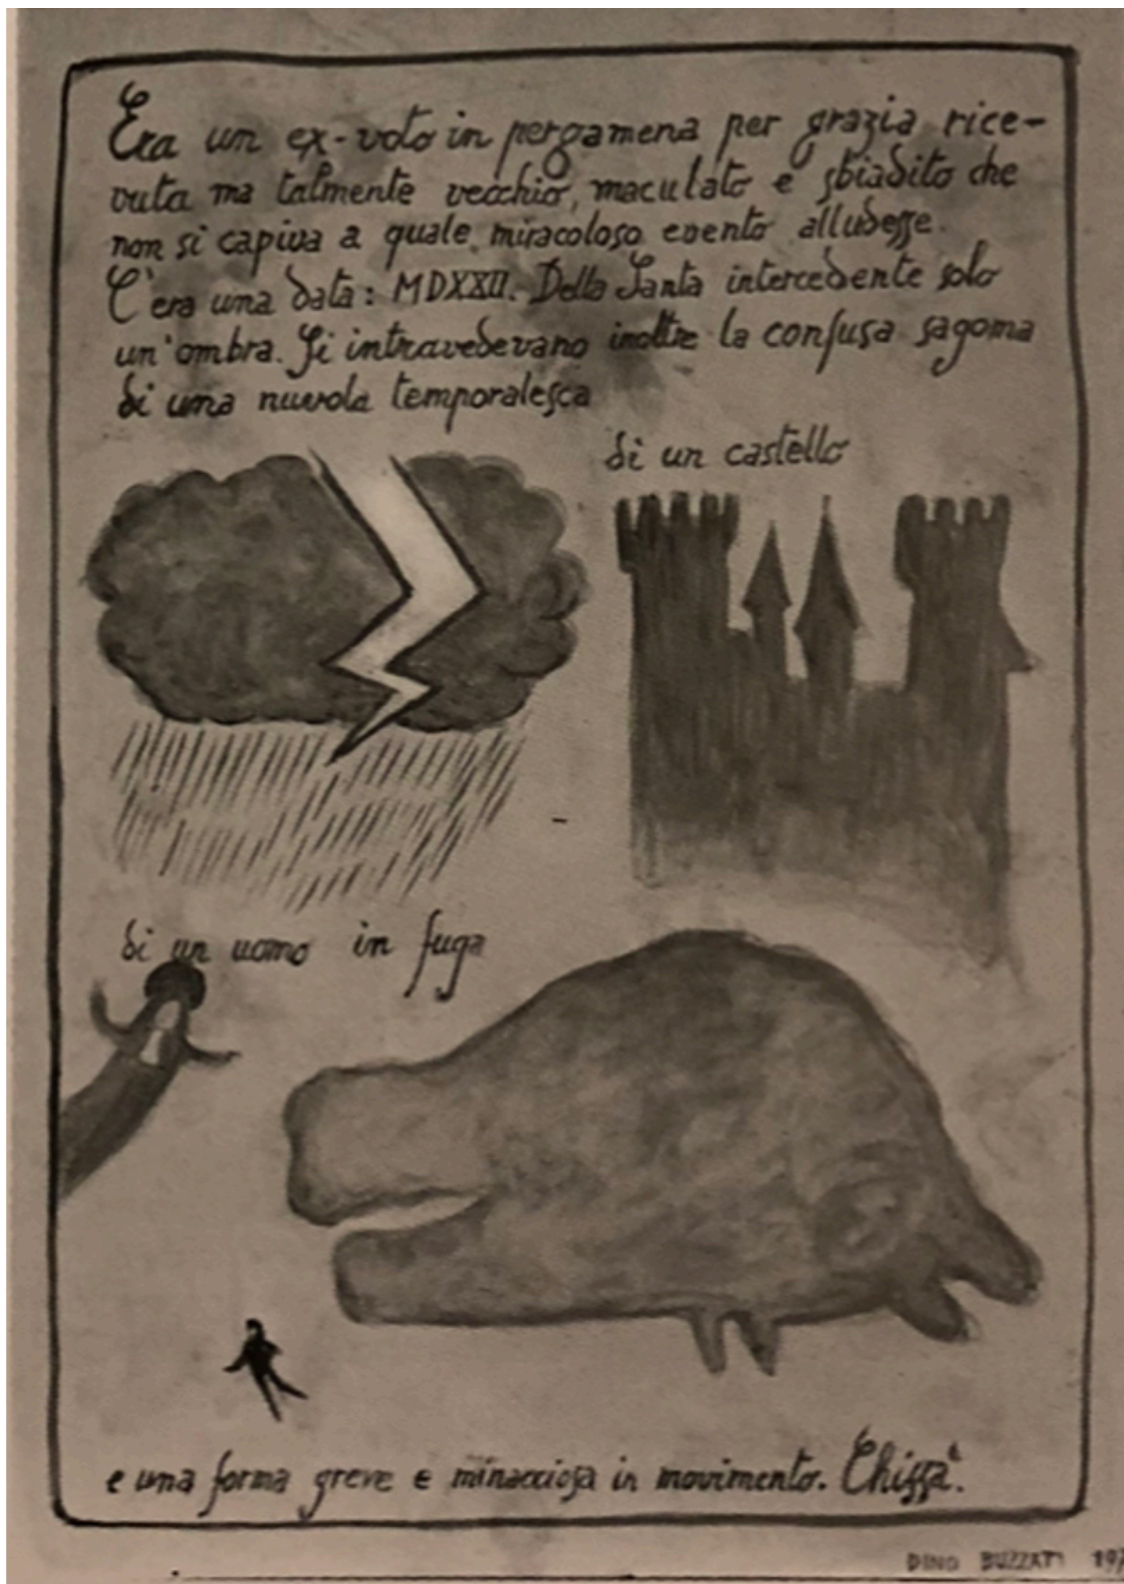 Era un ex-voto in pergamena per grazia rice-
vuta ma talmente vecchio, maculato e sbiadito che
non si capiva a quale miracoloso evento alludesse.
C'era una data: MDXXII. Della Santa intercedente solo
un'ombra. Si intravedevano inoltre la confusa sagoma
di una nuvola temporalesca
di un castello
di un uomo in fuga
e una forma greve e minacciosa in movimento. Chissà.
DINO BUZZATI 197